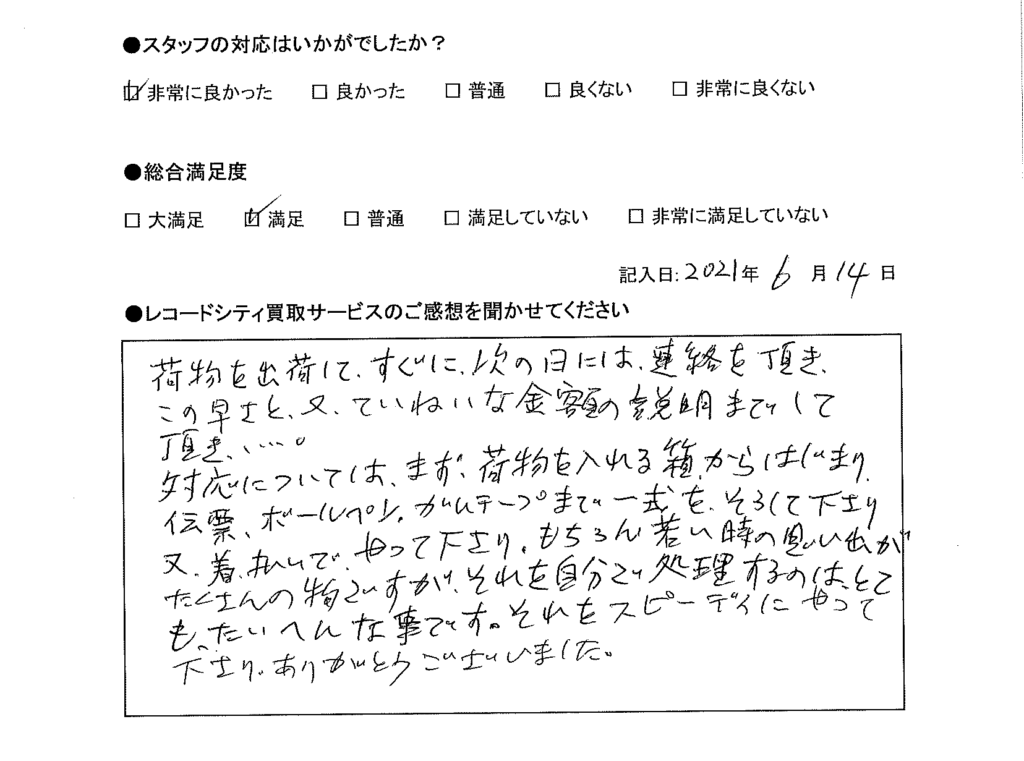 ●スタッフの対応はいかがでしたか？
☑ 非常に良かった □ 良かった □ 普通 □ 良くない □ 非常に良くない
●総合満足度
□ 大満足 ☑ 満足 □ 普通 □ 満足していない □ 非常に満足していない
記入日:2021年 6 月 14 日
●レコードシティ買取サービスのご感想を聞かせてください
荷物を出荷して、すぐに、次の日には、連絡を頂き、
この早さと、又、ていねいな金額の説明までして
頂き、…。
対応については、まず、荷物を入れる箱からはじまり、
伝票、ボールペン、ガムテープまで一式を、そろして下さり
又、着払いで、やって下さり、もちろん若い時の思い出が
たくさんの物ですが、それを自分で処理するのは、とて
も、たいへんな事です。それをスピーディにやって
下さり、ありがとうございました。